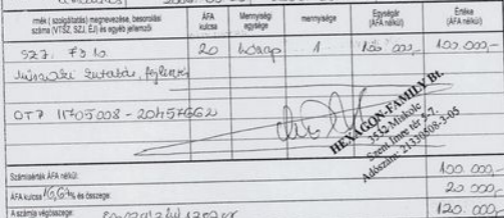 rmék (szolgáltatás) megnevezése, besorolási száma (VTSZ, SZJ, ÉJ) és egyéb jelemzői
ÁFA kulcsa
Mennyiségi egysége
mennyisége
Egységár (ÁFA nélkül)
Értéke (ÁFA nélkül)
SZJ. 73 10 20 hónap 1 100 000,- 100.000,-
Műszaki kutatás, fejlesztés
OTP 11705008 - 20457662
HEXAGON-FAMILY Bt.
3532 Miskolc
Szent Imre tér 5-7.
Adószám: 21330508-3-05
Számlaérték ÁFA nélkül: 100.000,-
ÁFA kulcsa 16,67% és összege: 20 000,-
A számla végösszege: 120.000,-